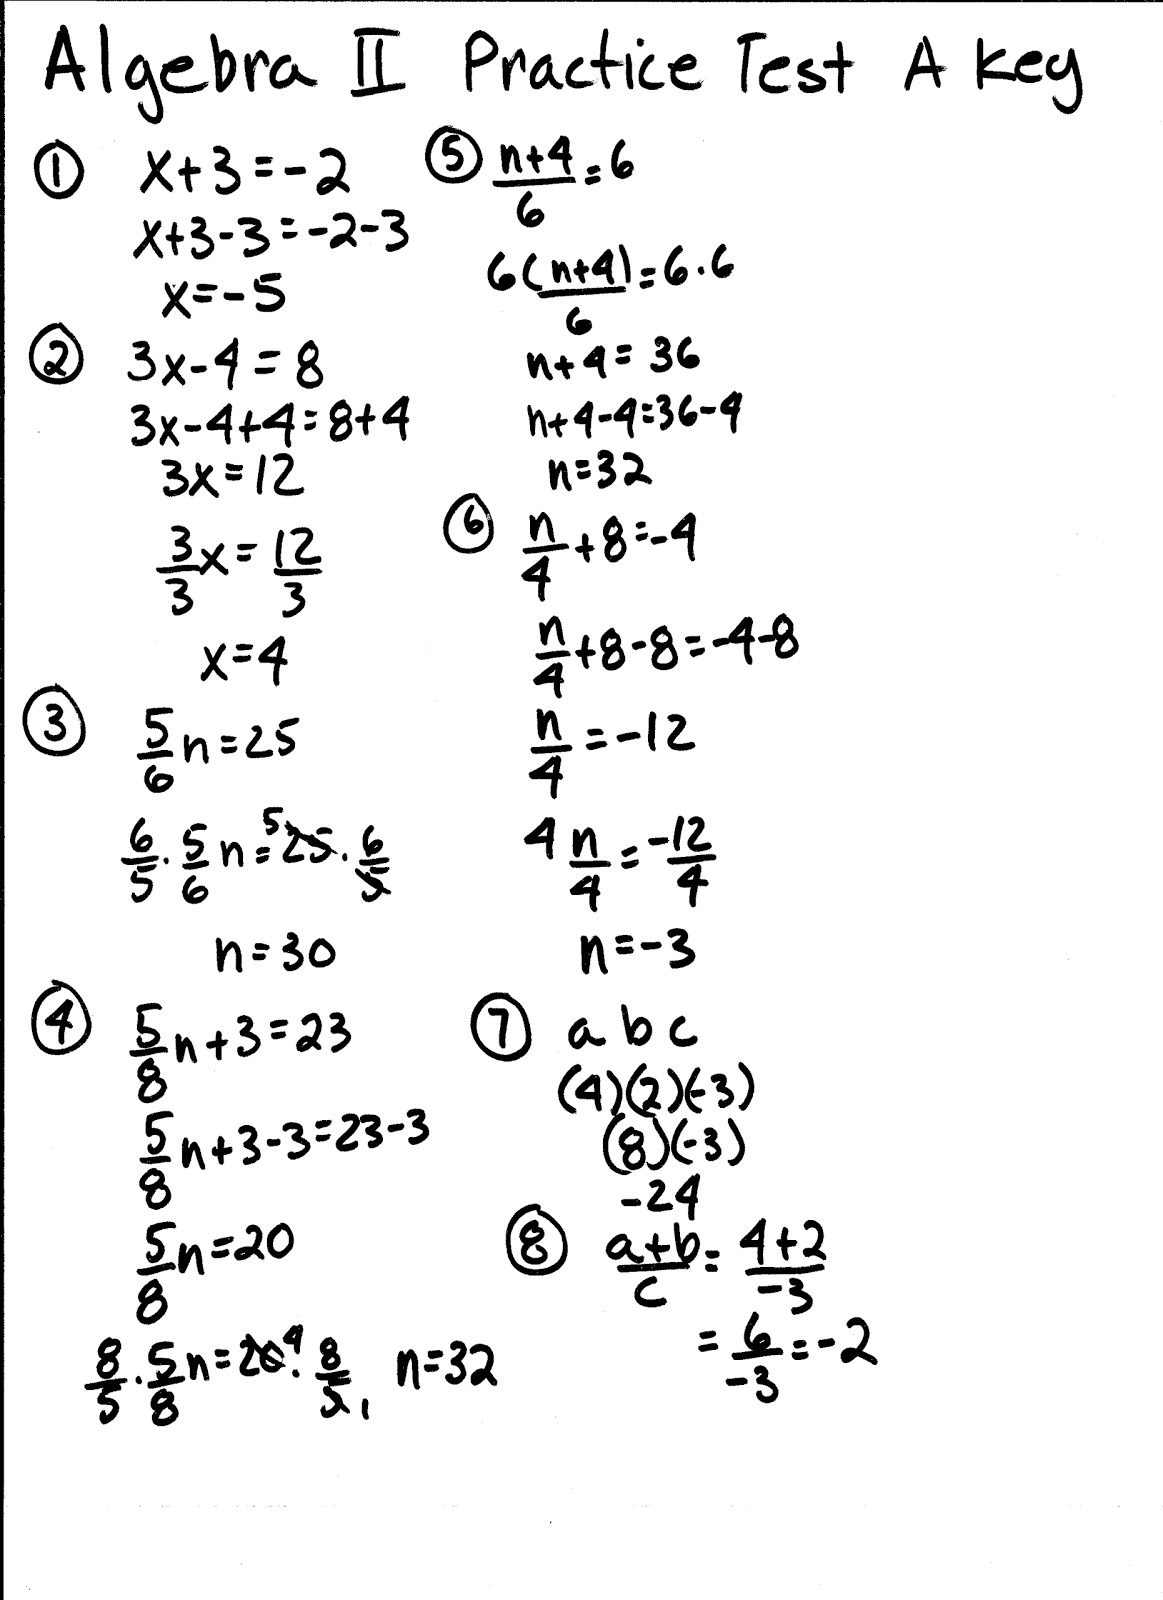 Algebra II Practice Test A Key
① x+3=-2
x+3-3=-2-3
x=-5
② 3x-4=8
3x-4+4=8+4
3x=12
3/3 x=12/3
x=4
③ 5/6 n=25
6/5 · 5/6 n= 5 25 · 6/5
n=30
④ 5/8 n+3=23
5/8 n+3-3=23-3
5/8 n=20
8/5 · 5/8 n=20 4 · 8/5 1 n=32
⑤ n+4/6 =6
6(n+4)/6 =6·6
n+4=36
n+4-4=36-4
n=32
⑥ n/4 +8=-4
n/4 +8-8=-4-8
n/4 =-12
4 n/4 = -12/4
n=-3
⑦ a b c
(4)(2)(-3)
(8)(-3)
-24
⑧ a+b/c = 4+2/-3
= 6/-3 =-2